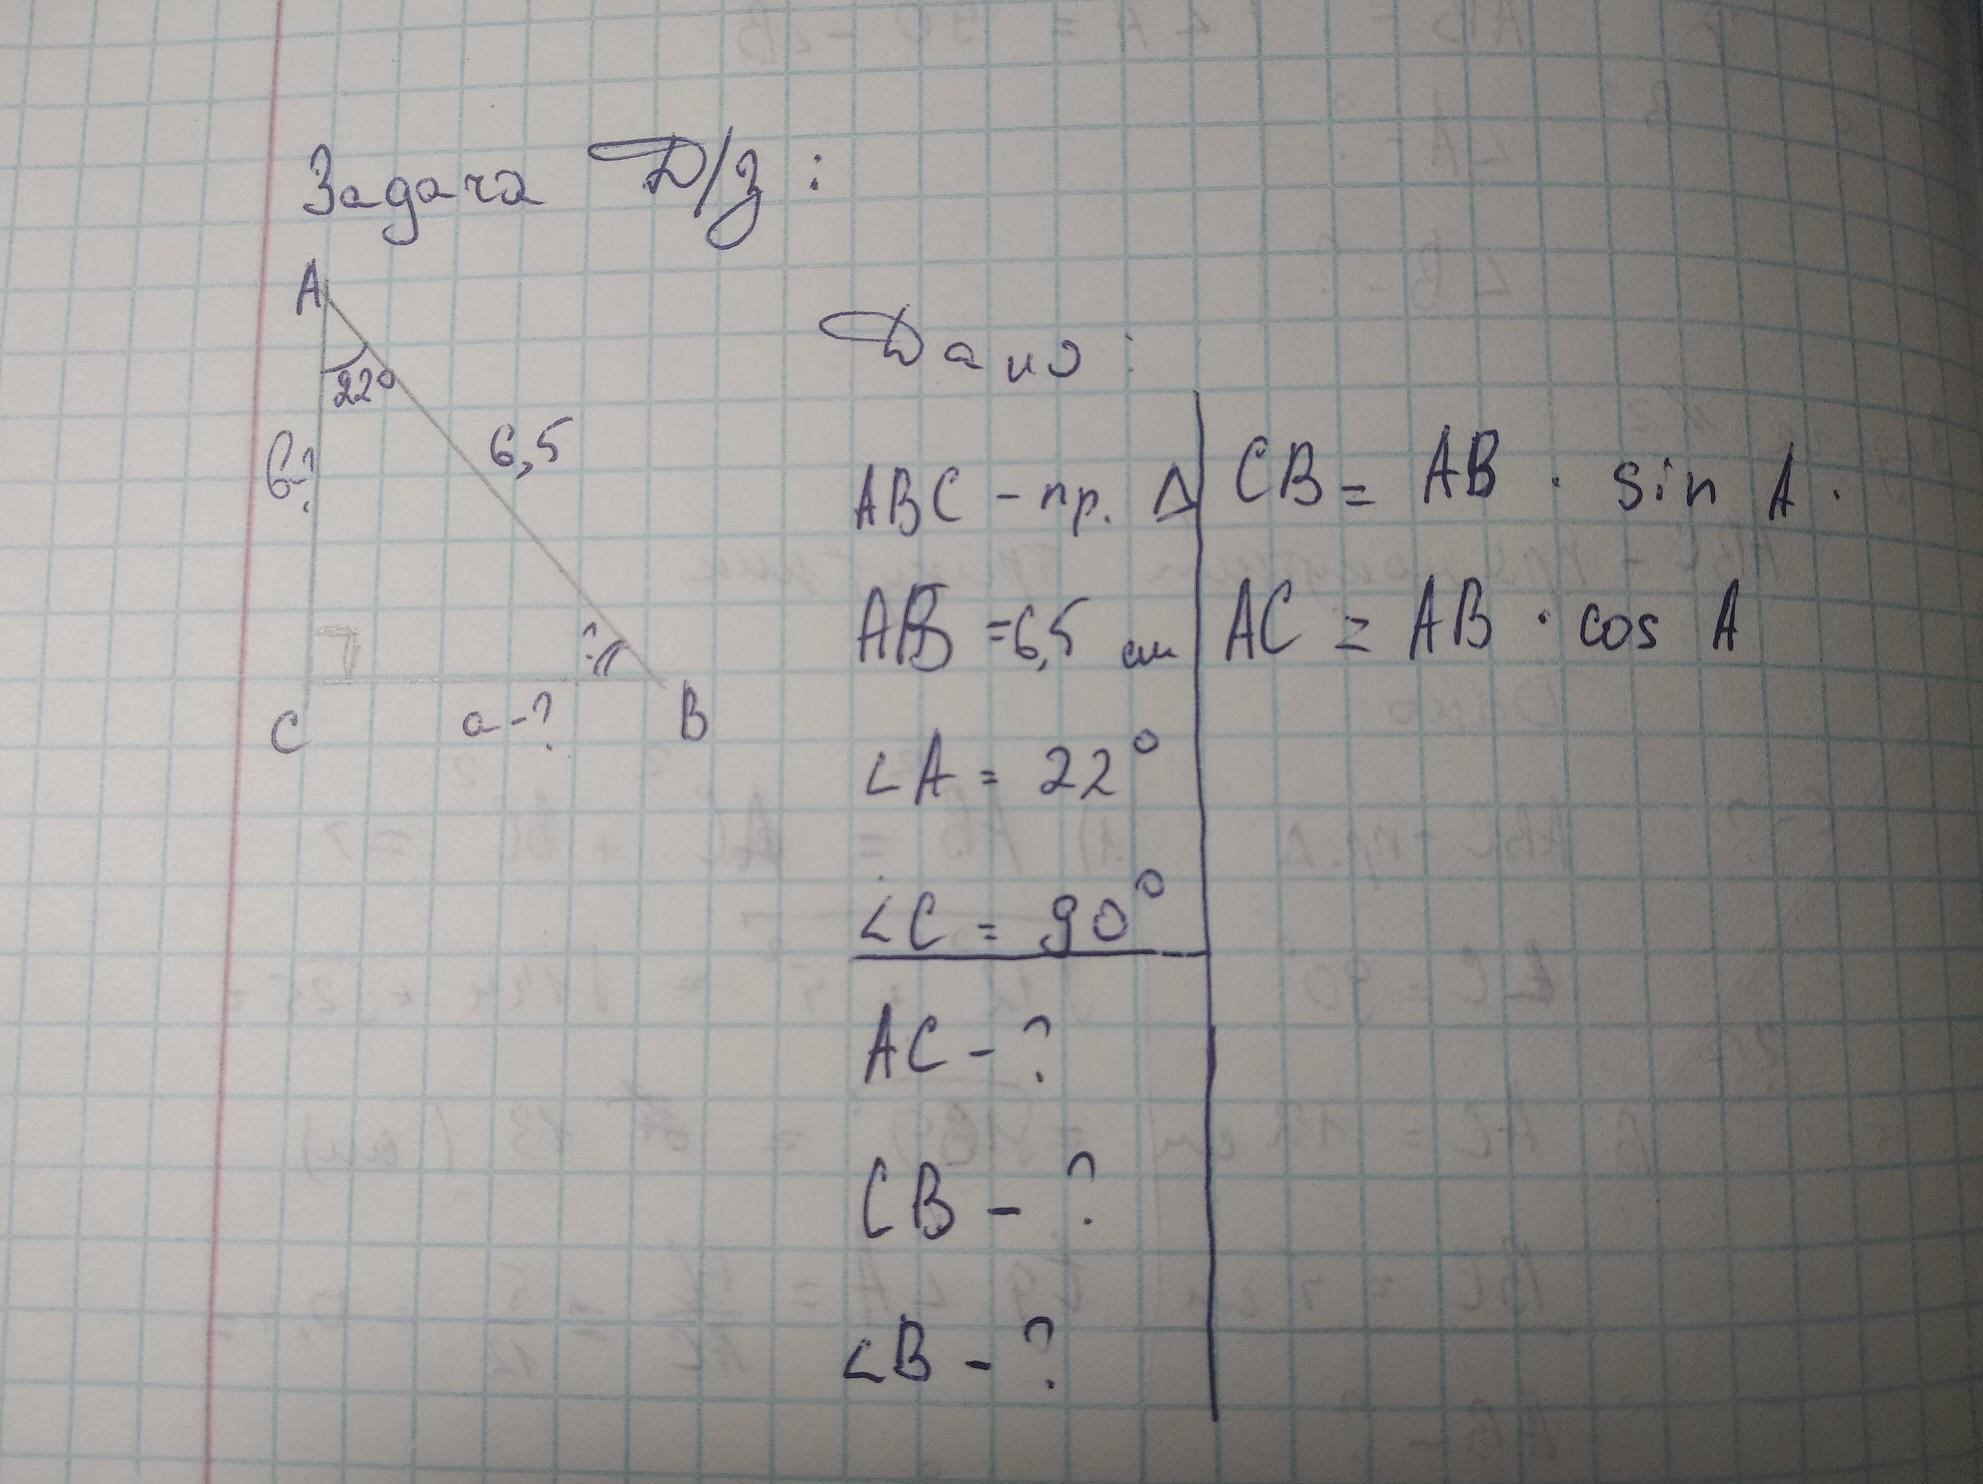 Задача Д/з:
A
22°
6,5
в-?
?
C
a-?
B
Дано:
ABC - пр. Δ
AB = 6,5 см
∠A = 22°
∠C = 90°
AC - ?
CB - ?
∠B - ?
CB = AB · sin A.
AC = AB · cos A